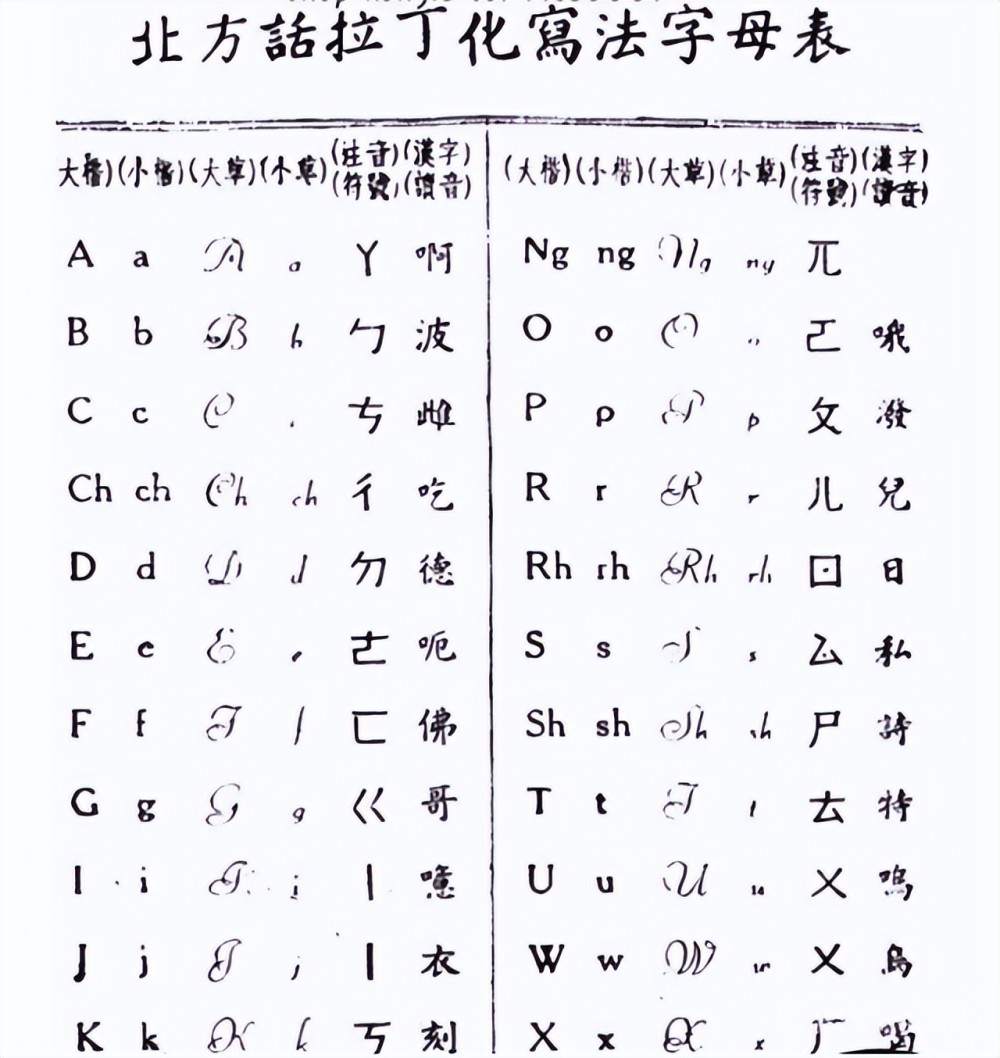 北方話拉丁化寫法字母表
大楷)(小楷)(大草)(小草)(注音)(漢字)
(符號)(讀音)
A a A a ㄚ 啊
B b B b ㄅ 波
C c C ㄘ 雌
Ch ch Ch ch ㄔ 吃
D d D d ㄉ 德
E e E e ㄜ 呃
F f F f ㄈ 佛
G g G g ㄍ 哥
I i I i ㄧ 噫
J j J j ㄧ 衣
K k K k ㄎ 刻
(大楷)(小楷)(大草)(小草)(注音)(漢字)
(符號)(讀音)
Ng ng Ng ng ㄫ
O o O ㄛ 哦
P p P p ㄆ 潑
R r R r ㄦ 兒
Rh rh Rh rh ㄖ 日
S s S s ㄙ 私
Sh sh Sh sh ㄕ 詩
T t T t ㄊ 特
U u U u ㄨ 嗚
W w W w ㄨ 烏
X x X x ㄏ 喝